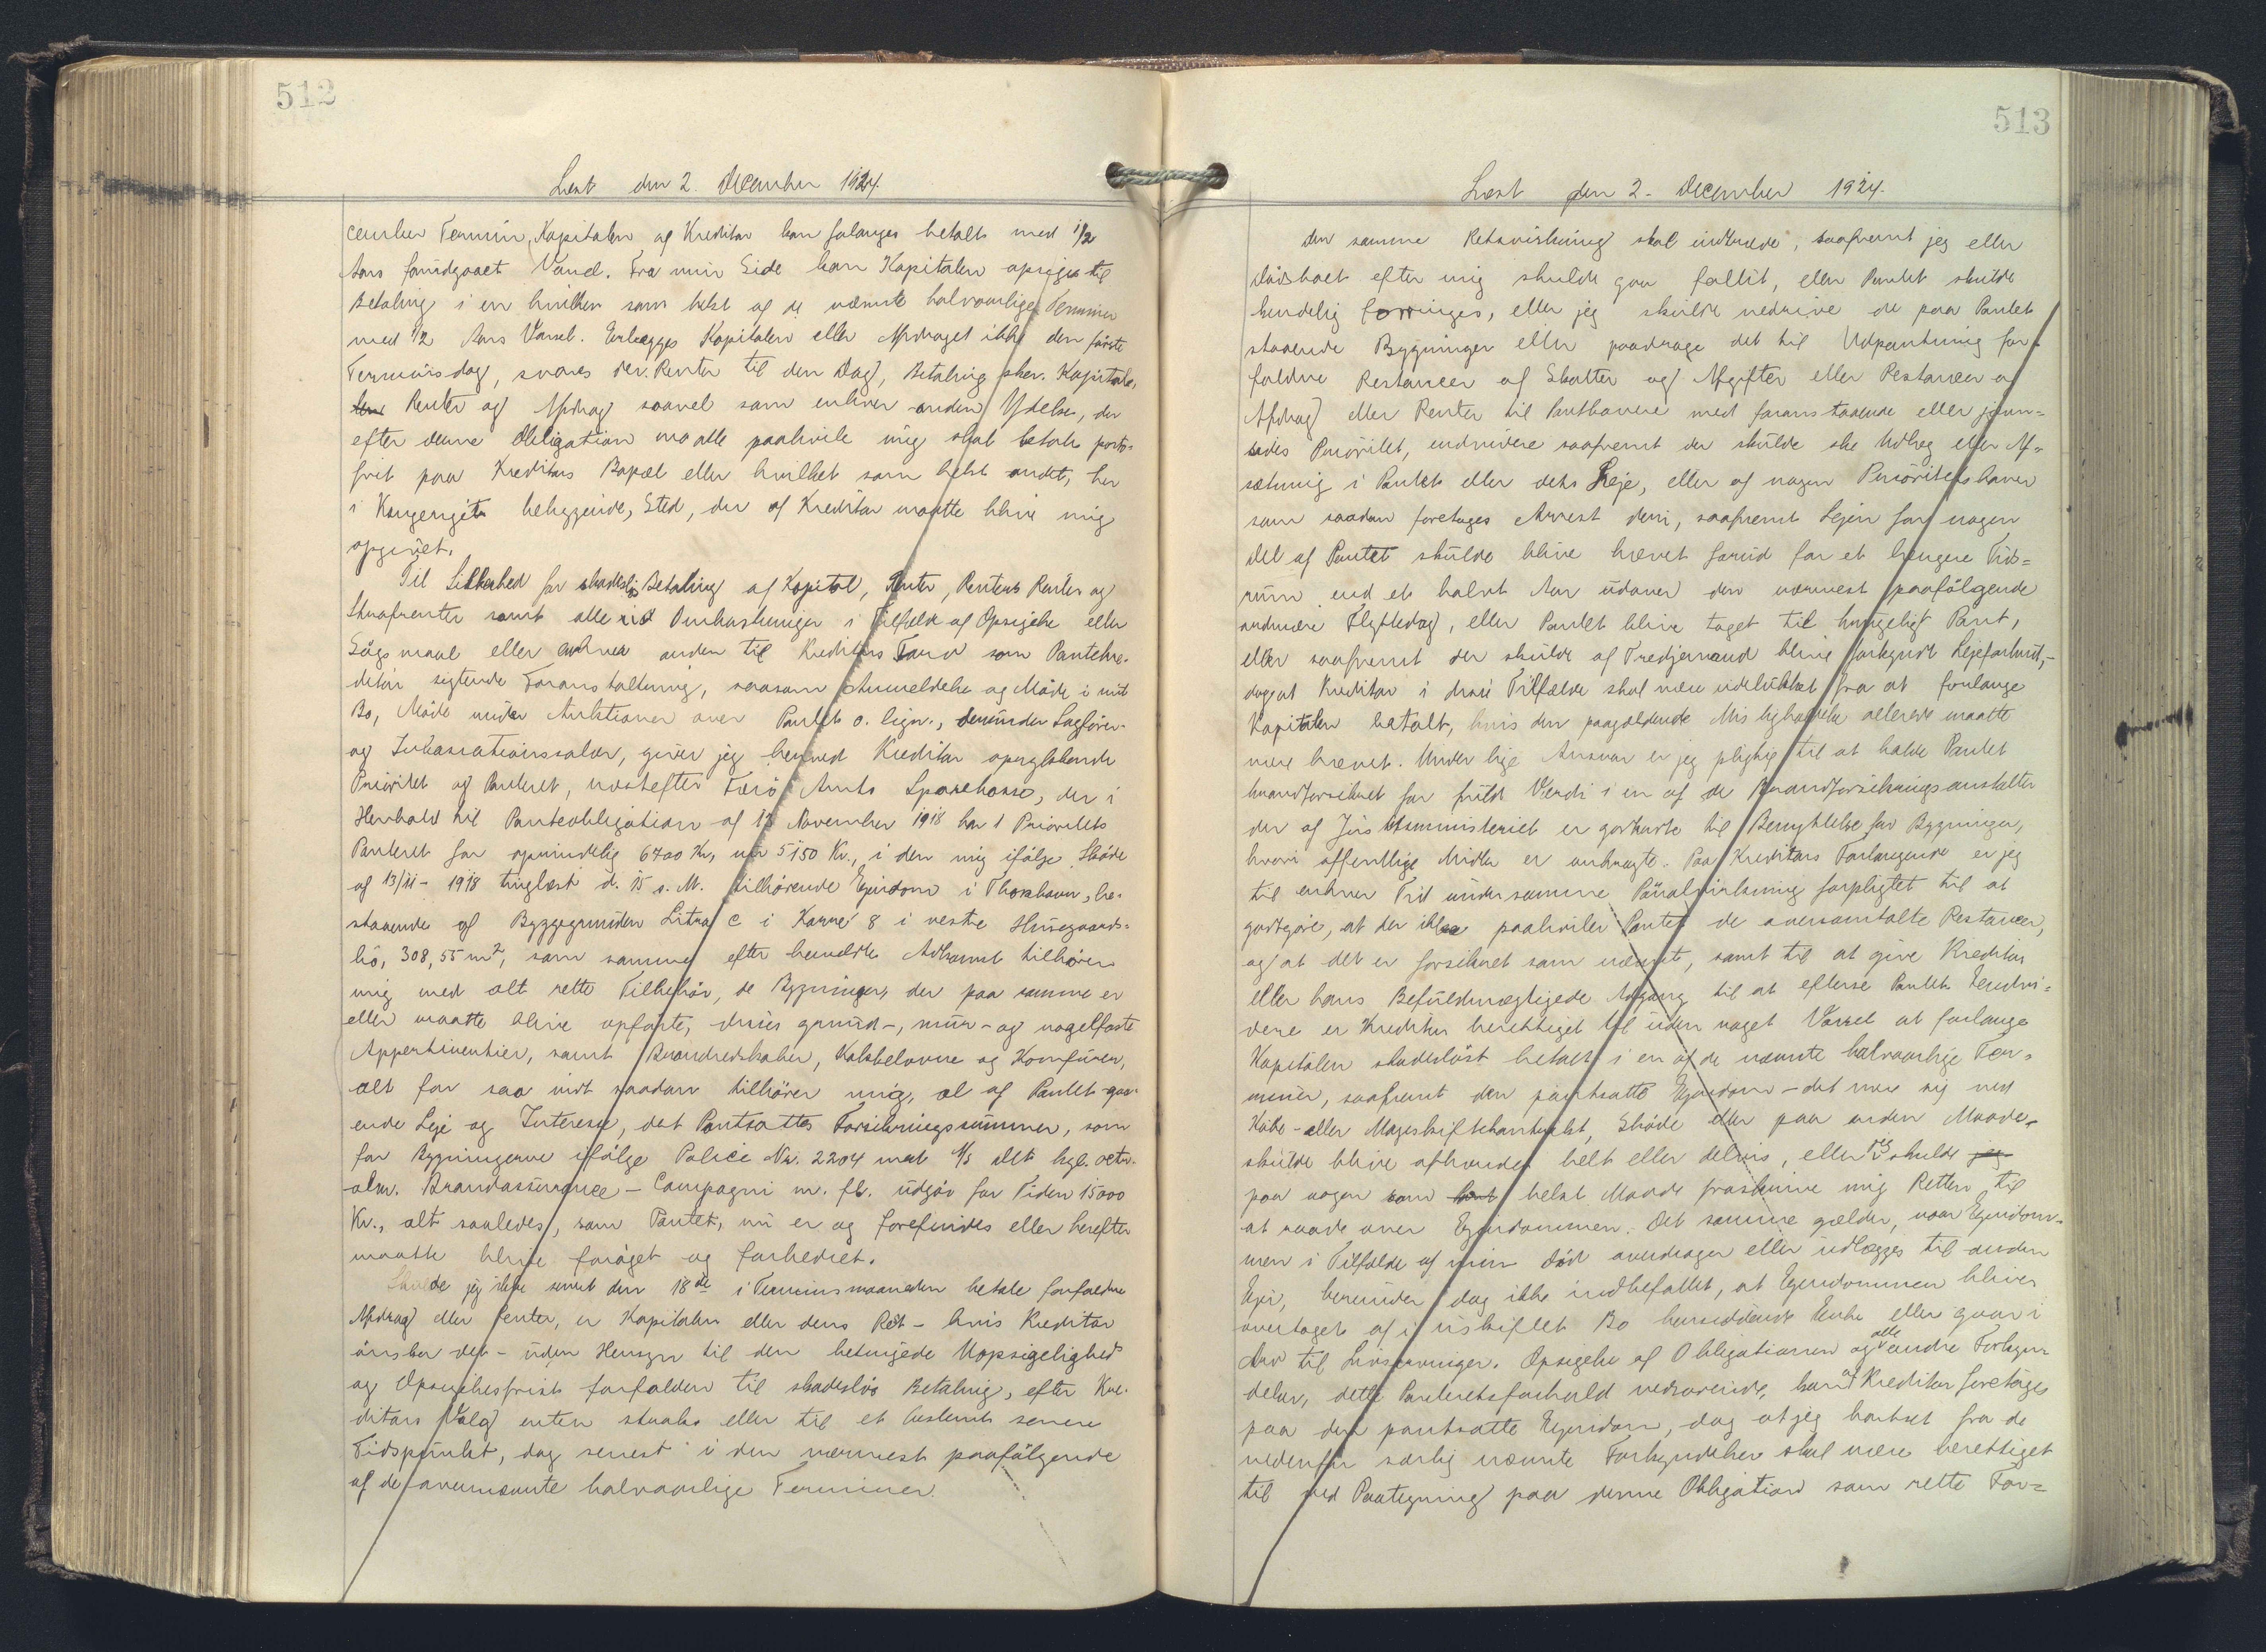 512
Læst den 2. December 1924.
cember Termin, Kapitalen af Kreditor kan forlanges betalt med 1/2
Aars forudgaaet Varsel. Fra min Side kan Kapitalen opsiges til
Betaling i en hvilken som helst af de nævnte halvaarlige Terminer
med 1/2 Aars Varsel. Erlægges Kapitalen eller Afdraget ikke den første
Terminsdag, svares der Renter til den Dag, Betaling sker. Kapitalen,
Renter og Afdrag saavel som enhver anden Ydelse, der
efter denne Obligation maatte paahvile mig skal betales porto-
frit paa Kreditors Bopæl eller hvilket som helst andet, her
i Kongeriget beliggende, Sted, der af Kreditor maatte blive mig
opgivet.
Til Sikkerhed for skadesløs Betaling af Kapital, Renter, Renters Renter og
Strafrenter samt alle Omkostninger i Tilfælde af Opsigelse eller
Søgsmaal eller enhver anden til Kreditors Tarv som Pantekre-
ditor sigtende Foranstaltning, saasom Anmeldelse og Møde i mit
Bo, Møde under Auktioner over Pantet o. lign., derunder Sagfører-
og Inkassationssalær, giver jeg herved Kreditor oprykkende
Prioritet og Panteret, næstefter Færø Amts Sparekasse, der i
Henhold til Panteobligation af 13 November 1918 har 1 Prioritets
Panteret for oprindelig 6400 Kr., nu 5150 Kr., i den mig ifølge Skøde
af 13/11 - 1918 tinglæst d. 15 s. M. tilhørende Ejendom i Thorshavn, be-
staaende af Byggegrunden Litra C i Karré 8 i vestre Husegaards-
bø, 308,55 m2, som samme efter bemeldte Adkomst tilhører
mig med alt rette Tilbehør, de Bygninger, der paa samme er
eller maatte blive opførte, disses grund-, mur- og nagelfaste
Appertinentier, samt Brandredskaber, Kakkelovne og Komfurer,
alt for saa vidt saadant tilhører mig, al af Pantet gaa-
ende Leje og Interesse, det Pantsattes Forsikringssummer, som
for Bygningerne ifølge Police Nr. 2204 med det kgl. octr.
alm. Brandassurance-Compagni m. fl. udgør for Tiden 15000
Kr., alt saaledes, som Pantet, nu er og forefindes eller herefter
maatte blive forøget og forbedret.
Skulde jeg ikke senest den 18de i Terminsmaaneden betale forfaldne
Afdrag eller Renter, er Kapitalen eller dens Rest - hvis Kreditor
ønsker det - uden Hensyn til den betingede Uopsigelighed
og Opsigelsesfrist forfalden til skadesløs Betaling, efter Kre-
ditors Valg enten straks eller til et bestemt senere
Tidspunkt, dog senest i den nærmest paafølgende
af de ovennævnte halvaarlige Terminer.
513
Læst den 2. December 1924.
den samme Retsvirkning skal indtræde, saafremt jeg eller
Dødsboet efter mig skulde gaa fallit, eller Pantet skulde
kendelig forringes, eller jeg skulde nedrive de paa Pantet
staaende Bygninger eller paadrage det til Udpantning for-
faldne Restancer af Skatter og Afgifter eller Restancer af
Afdrag eller Renter til Panthavere med foranstaaende eller jævn-
sides Prioritet, endvidere saafremt der skulde ske Udlæg eller Af-
sætning i Pantet eller dets Leje, eller af nogen Prioritetshaver
som saadan foretages Arrest deri, saafremt Lejen for nogen
Del af Pantet skulde blive hævet forud for et længere Tids-
rum end et halvt Aar udover den nærmest paafølgende
ordinære Flyttedag, eller Pantet blive taget til brugeligt Pant,
eller saafremt der skulde af Tredjemand blive forkyndt Lejeforbud,-
dog at Kreditor i disse Tilfælde skal være udelukket fra at forlange
Kapitalen betalt, hvis den paagældende Misligholdelse allerede maatte
være hævet. Under lige Ansvar er jeg pligtig til at holde Pantet
brandforsikret for fuld Værdi i en af de Brandforsikringsanstalter
der af Justitsministeriet er godkendte til Benyttelse for Bygninger,
hvori offentlige Midler er anbragte. Paa Kreditors Forlangende er jeg
til enhver Tid under samme Pønalvirkning forpligtet til at
godtgøre, at der ikke paahviler Pantet de ovenomtalte Restancer,
og at det er forsikret som nævnt, samt til at give Kreditor
eller hans Befuldmægtigede Adgang til at efterse Pantet. Endvi-
dere er Kreditor berettiget til uden noget Varsel at forlange
Kapitalen skadesløst betalt i en af de nævnte halvaarlige Ter-
miner, saafremt den pantsatte Ejendom - det være sig ved
Købe- eller Mageskiftekontrakt, Skøde eller paa anden Maade-
skulde blive afhændet helt eller delvis, eller jeg skulde jeg
paa nogen som helst Maade fraskrive mig Retten til
at raade over Ejendommen. Det samme gælder, naar Ejendom-
men i Tilfælde af min Død overdrages eller udlægges til anden
Ejer, herunder dog ikke indbefattet, at Ejendommen bliver
overtaget af i uskiftet Bo hensiddende Enke eller gaar i
Arv til Livsarvinger. Opsigelse af Obligationen og alle andre Forkyn-
delser, dette Panteretsforhold vedrørende, kan af Kreditor foretages
paa den pantsatte Ejendom, dog at jeg bortset fra de
nedenfor særlig nævnte Forkyndelser skal være berettiget
til ved Paategning paa denne Obligation som rette For-